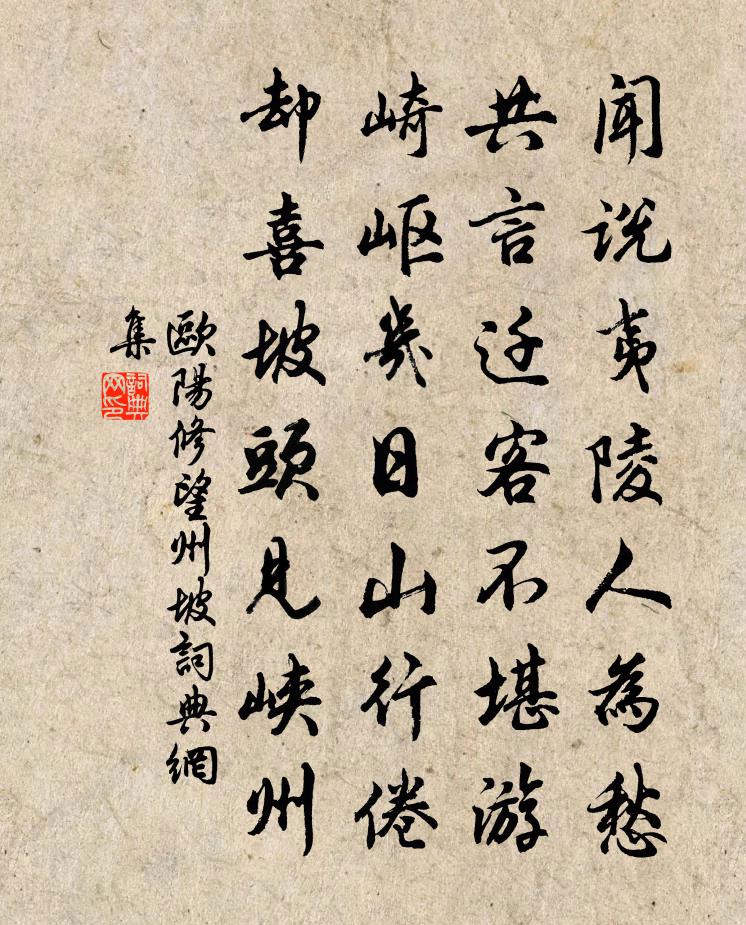 闻说夷陵人為愁
共言迁客不堪游
崎岖幾日山行倦
却喜坡頭見峡州
歐陽修望州坡詞典網
集
詞典
网印